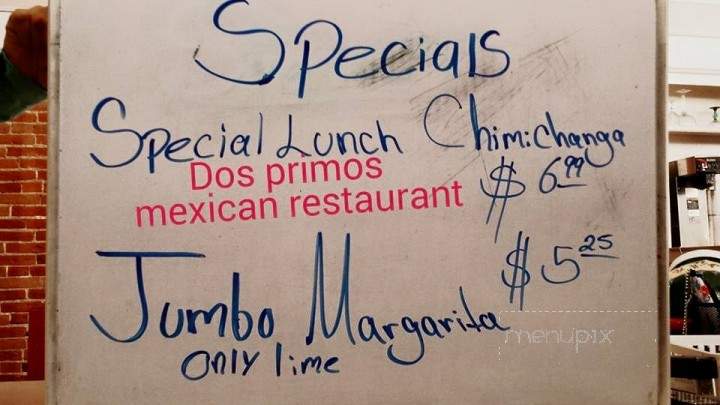 Specials
Special Lunch Chimichanga
$ 6.99
Dos primos
mexican restaurant
$ 5.25
Jumbo Margarita
only lime
menupix